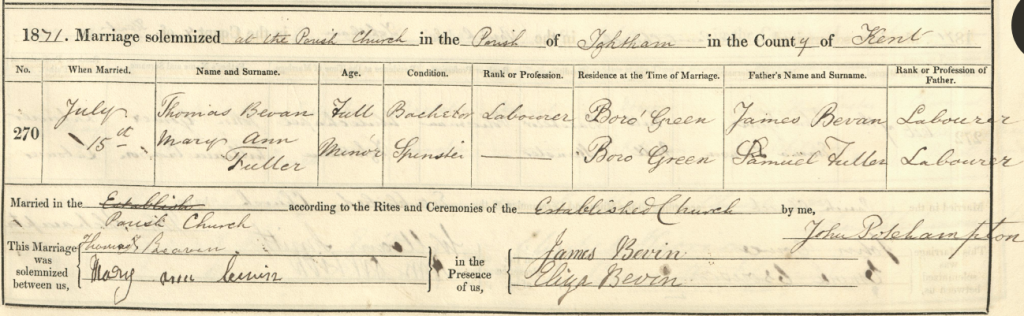 1871. Marriage solemnized at the Parish Church in the Parish of Ightham in the County of Kent
No. When Married. Name and Surname. Age. Condition. Rank or Profession. Residence at the Time of Marriage. Father's Name and Surname. Rank or Profession of Father.
270 July 15th Thomas Bevan Full Bachelor Labourer Boro' Green James Bevan Labourer
Mary Ann Fuller Minor Spinster Boro Green Samuel Fuller Labourer
Married in the Establish according to the Rites and Ceremonies of the Established Church by me,
Parish Church John
This Marriage was solemnized between us, Thomas Beaven in the Presence of us, James Bevin
Mary ann Eliza Bevin